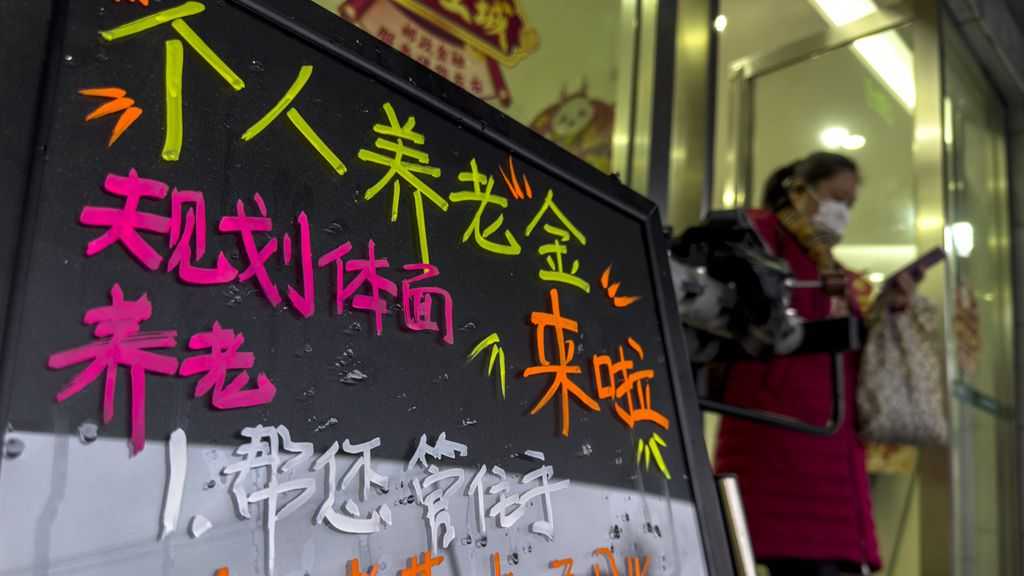 个人养老金
来啦
规划体面
养老
1.帮您管住手